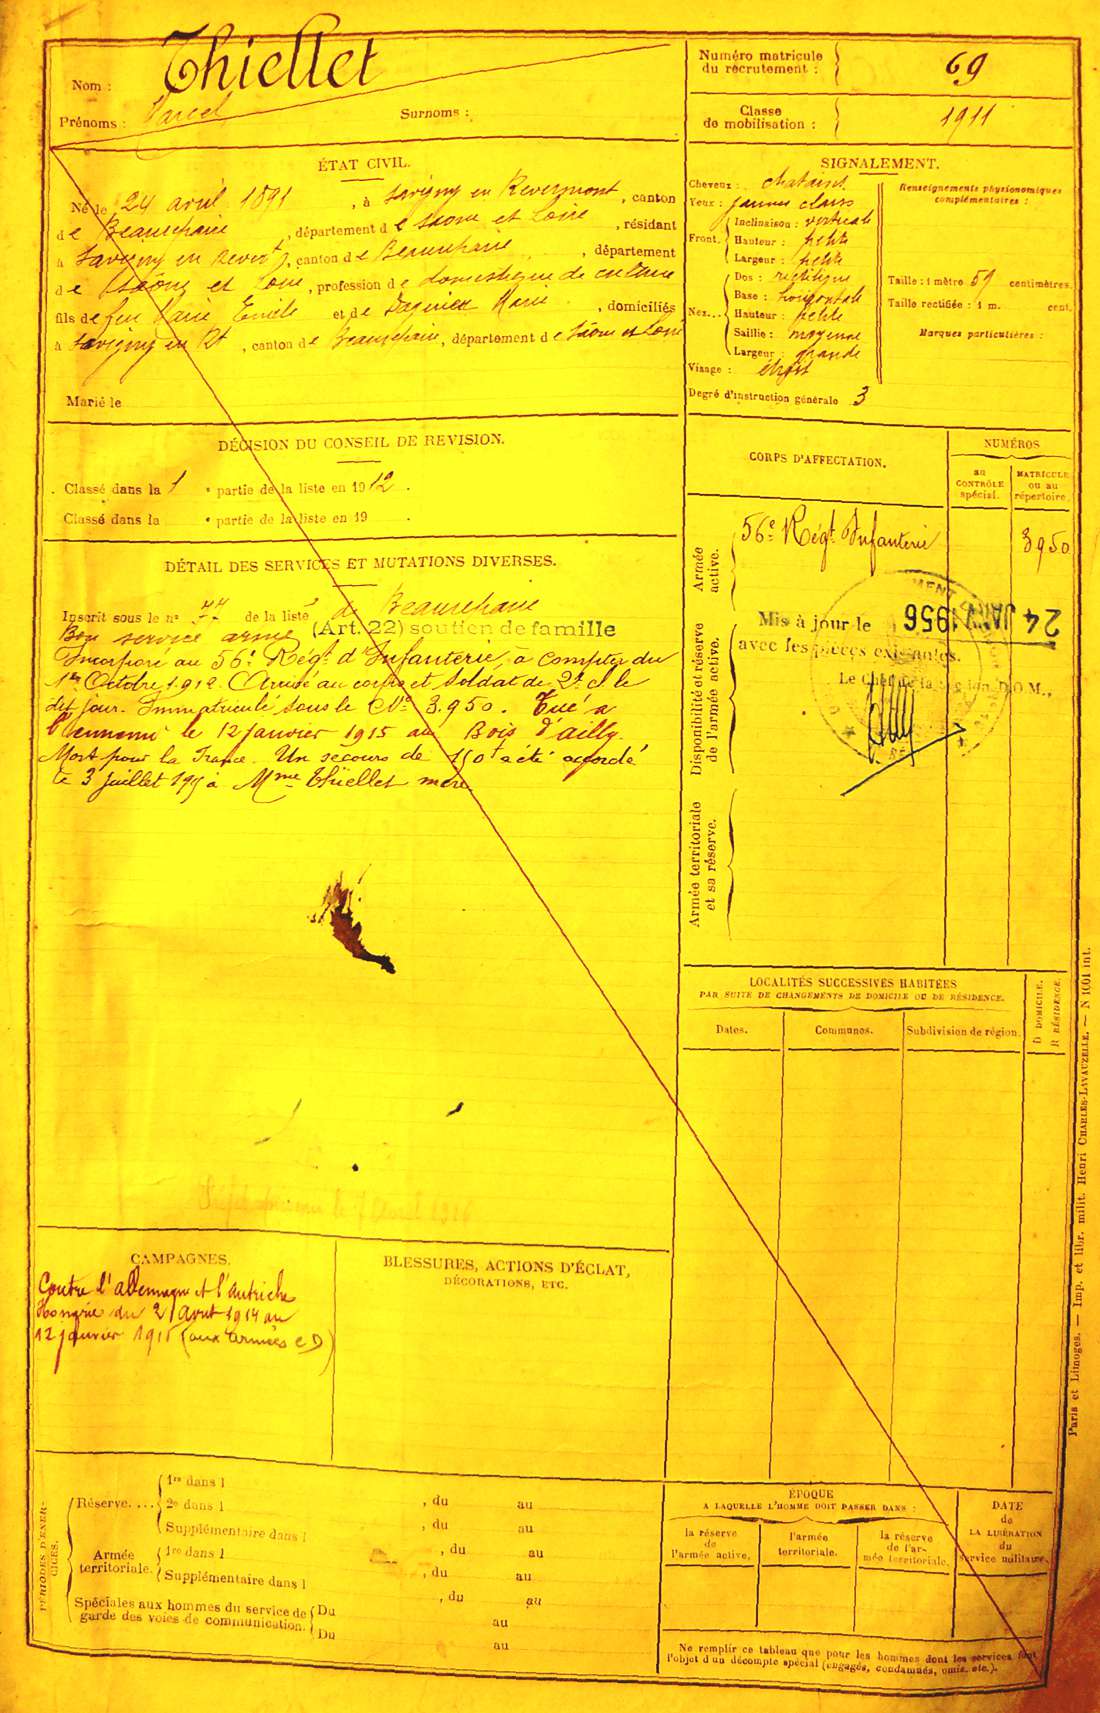 Nom : Thiellet
Prénoms : Marcel Surnoms :
Numéro matricule du recrutement : 69
Classe de mobilisation : 1911
ÉTAT CIVIL.
Né le 24 avril 1891, à Savigny en Revermont, canton
de Beaurepaire, département de Saône et Loire, résidant
à Savigny en Revert, canton de Beaurepaire, département
de Saône et Loire, profession de domestique de culture
fils de feu Marie Emile et de Marie, domiciliés
à Savigny en Rt, canton de Beaurepaire, département de Saône et Loire
Marié le
SIGNALEMENT.
Cheveux : chatains
Yeux : jaunes clairs
Front. Inclinaison : verticale
Hauteur : petite
Largeur : petite
Nez... Dos : rectiligne
Base : horizontale
Hauteur : petite
Saillie : moyenne
Largeur : grande
Visage :
Degré d'instruction générale 3
Renseignements physionomiques complémentaires :
Taille : 1 mètre 59 centimètres.
Taille rectifiée : 1 m. cent.
Marques particulières :
DÉCISION DU CONSEIL DE REVISION.
Classé dans la 1 e partie de la liste en 1912.
Classé dans la e partie de la liste en 19 .
DÉTAIL DES SERVICES ET MUTATIONS DIVERSES.
Inscrit sous le n° de la liste de Beaurepaire
Bon service armé (Art. 22) soutien de famille
Incorporé au 56e Régt d'Infanterie, à compter du
1er Octobre 1912. Arrivé au corps et soldat de 2e cl. le
dit jour. Immatriculé sous le No 3.950. Tué à
l'ennemi le 12 janvier 1915 au Bois d'ailly.
Mort pour la France. Un secours de 150f a été accordé
le 3 juillet à Mme Thiellet mère.
CORPS D'AFFECTATION.
NUMÉROS
au CONTRÔLE spécial.
MATRICULE ou au répertoire.
Armée active.
56e Régt Infanterie 3950
Disponibilité et réserve de l'armée active.
Mis à jour le 24 JANV 1956
avec les pièces existantes.
Le Chef de la section D.O.M.,
Armée territoriale et sa réserve.
LOCALITÉS SUCCESSIVES HABITÉES
PAR SUITE DE CHANGEMENTS DE DOMICILE OU DE RÉSIDENCE.
Dates. Communes. Subdivision de région. D DOMICILE. R RÉSIDENCE.
CAMPAGNES.
Contre l'allemagne et l'autriche
Hongrie du 2 Août 1914 au
12 janvier 1915 (aux armées CD)
BLESSURES, ACTIONS D'ÉCLAT,
DÉCORATIONS, ETC.
PÉRIODES D'EXERCICES.
Réserve.... 1re dans l , du au
2e dans l , du au
Supplémentaire dans l , du au
Armée territoriale. 1re dans l , du au
Supplémentaire dans l , du au
Spéciales aux hommes du service de garde des voies de communication. Du au
Du au
ÉPOQUE
A LAQUELLE L'HOMME DOIT PASSER DANS :
la réserve de l'armée active.
l'armée territoriale.
la réserve de l'armée territoriale.
DATE de LA LIBÉRATION du service militaire.
Ne remplir ce tableau que pour les hommes dont les services font
l'objet d'un décompte spécial (engagés, condamnés, omis, etc.).
Paris et Limoges. — Imp. et libr. milit. Henri CHARLES-LAVAUZELLE. — N 1001 int.